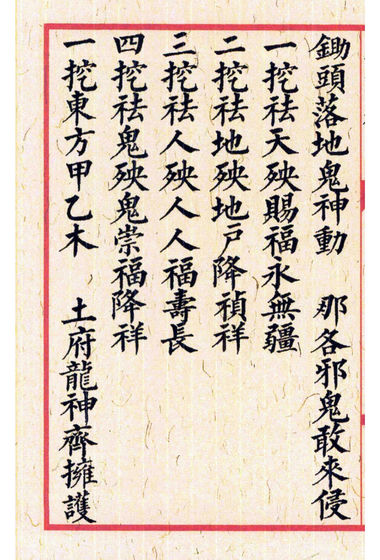 鋤頭落地鬼神動　那各邪鬼敢來侵
一挖祛天殃賜福永無疆
二挖祛地殃地戶降禎祥
三挖祛人殃人人福壽長
四挖祛鬼殃鬼祟福降祥
一挖東方甲乙木　土府龍神齊擁護